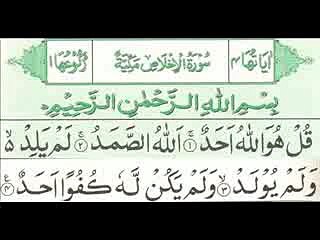 اٰيَاتُهَا ٤ سُوْرَةُ الْاِخْلَاصِ مَكِّيَّةٌ رُكُوْعُهَا ١
بِسْمِ اللهِ الرَّحْمٰنِ الرَّحِيْمِ
قُلْ هُوَ اللهُ اَحَدٌ ۚ ۝١ اَللهُ الصَّمَدُ ۚ ۝٢ لَمْ يَلِدْ ۵
وَلَمْ يُوْلَدْ ۙ ۝٣ وَلَمْ يَكُنْ لَّهٗ كُفُوًا اَحَدٌ ۧ ۝٤